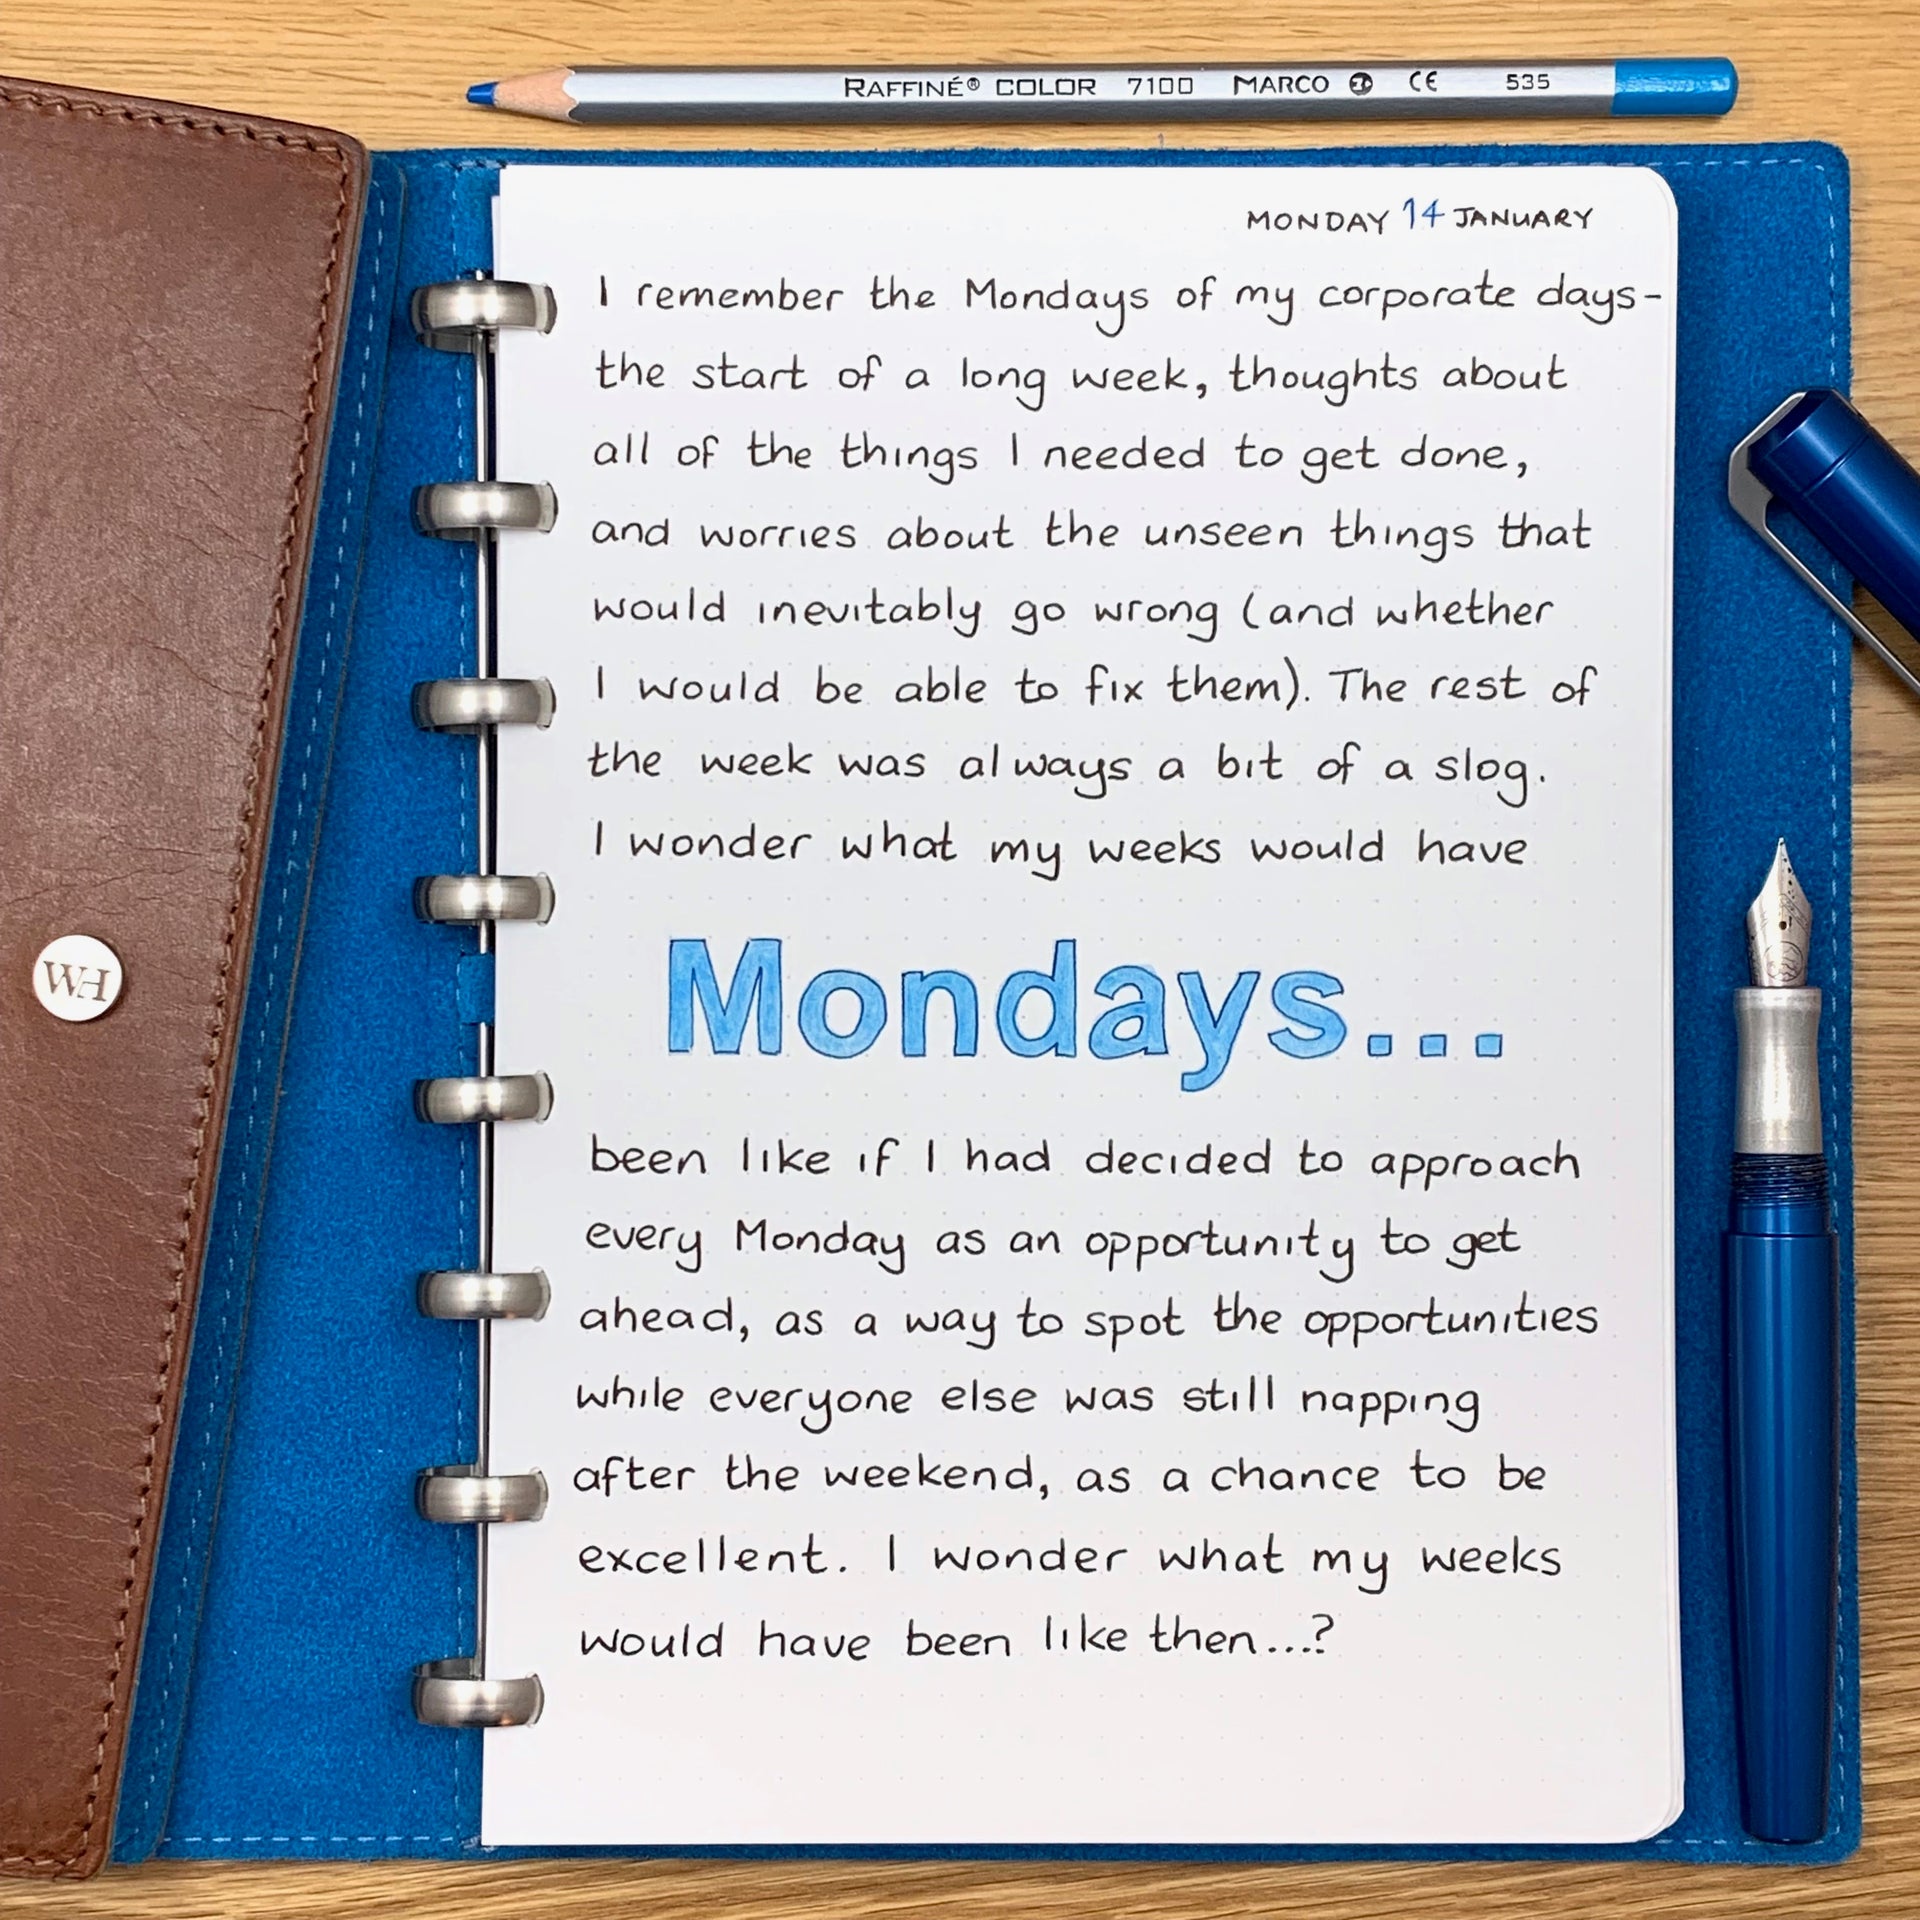 RAFFINÉ® COLOR 7100 MARCO CE 535
MONDAY 14 JANUARY
I remember the Mondays of my corporate days-
the start of a long week, thoughts about
all of the things I needed to get done,
and worries about the unseen things that
would inevitably go wrong (and whether
I would be able to fix them). The rest of
the week was always a bit of a slog.
I wonder what my weeks would have
Mondays...
been like if I had decided to approach
every Monday as an opportunity to get
ahead, as a way to spot the opportunities
while everyone else was still napping
after the weekend, as a chance to be
excellent. I wonder what my weeks
would have been like then...?
WH